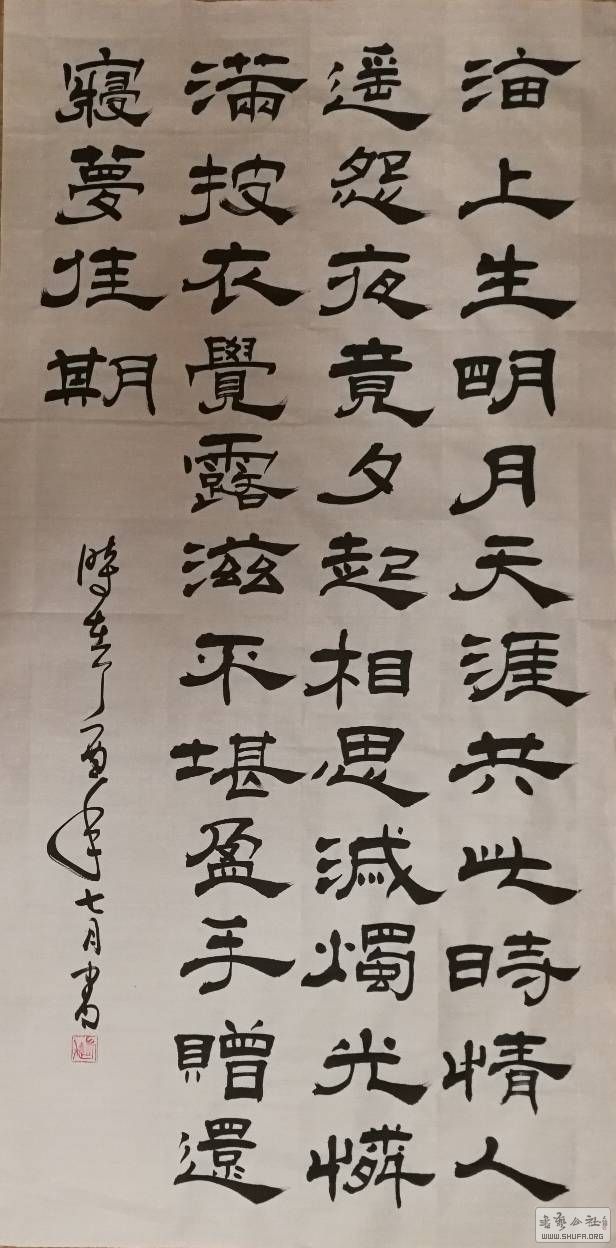 海上生明月天涯共此時情人
遥怨夜竟夕起相思滅燭光憐
滿披衣覺露滋不堪盈手贈還
寢夢佳期
時在丁酉年七月書
書藝公社
WWW.SHUFA.ORG